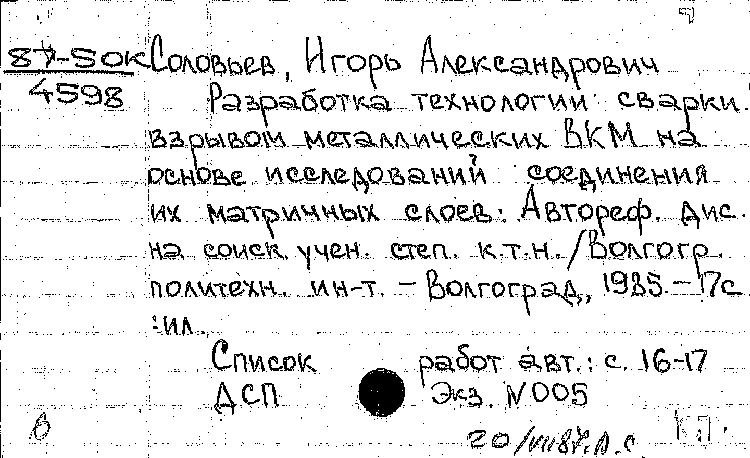 87-5ОК Соловьев, Игорь Александрович
4598 Разработка технологии сварки
взрывом металлических ВКМ на
основе исследований соединения
их матричных слоев. Автореф. дис.
на соиск. учен. степ. к.т.н. /Волгогр.
политехн. ин-т. – Волгоград, 1985. – 17с
: ил.
Список работ авт.: с. 16-17
ДСП Экз. N 005
20/VII87. А.С.